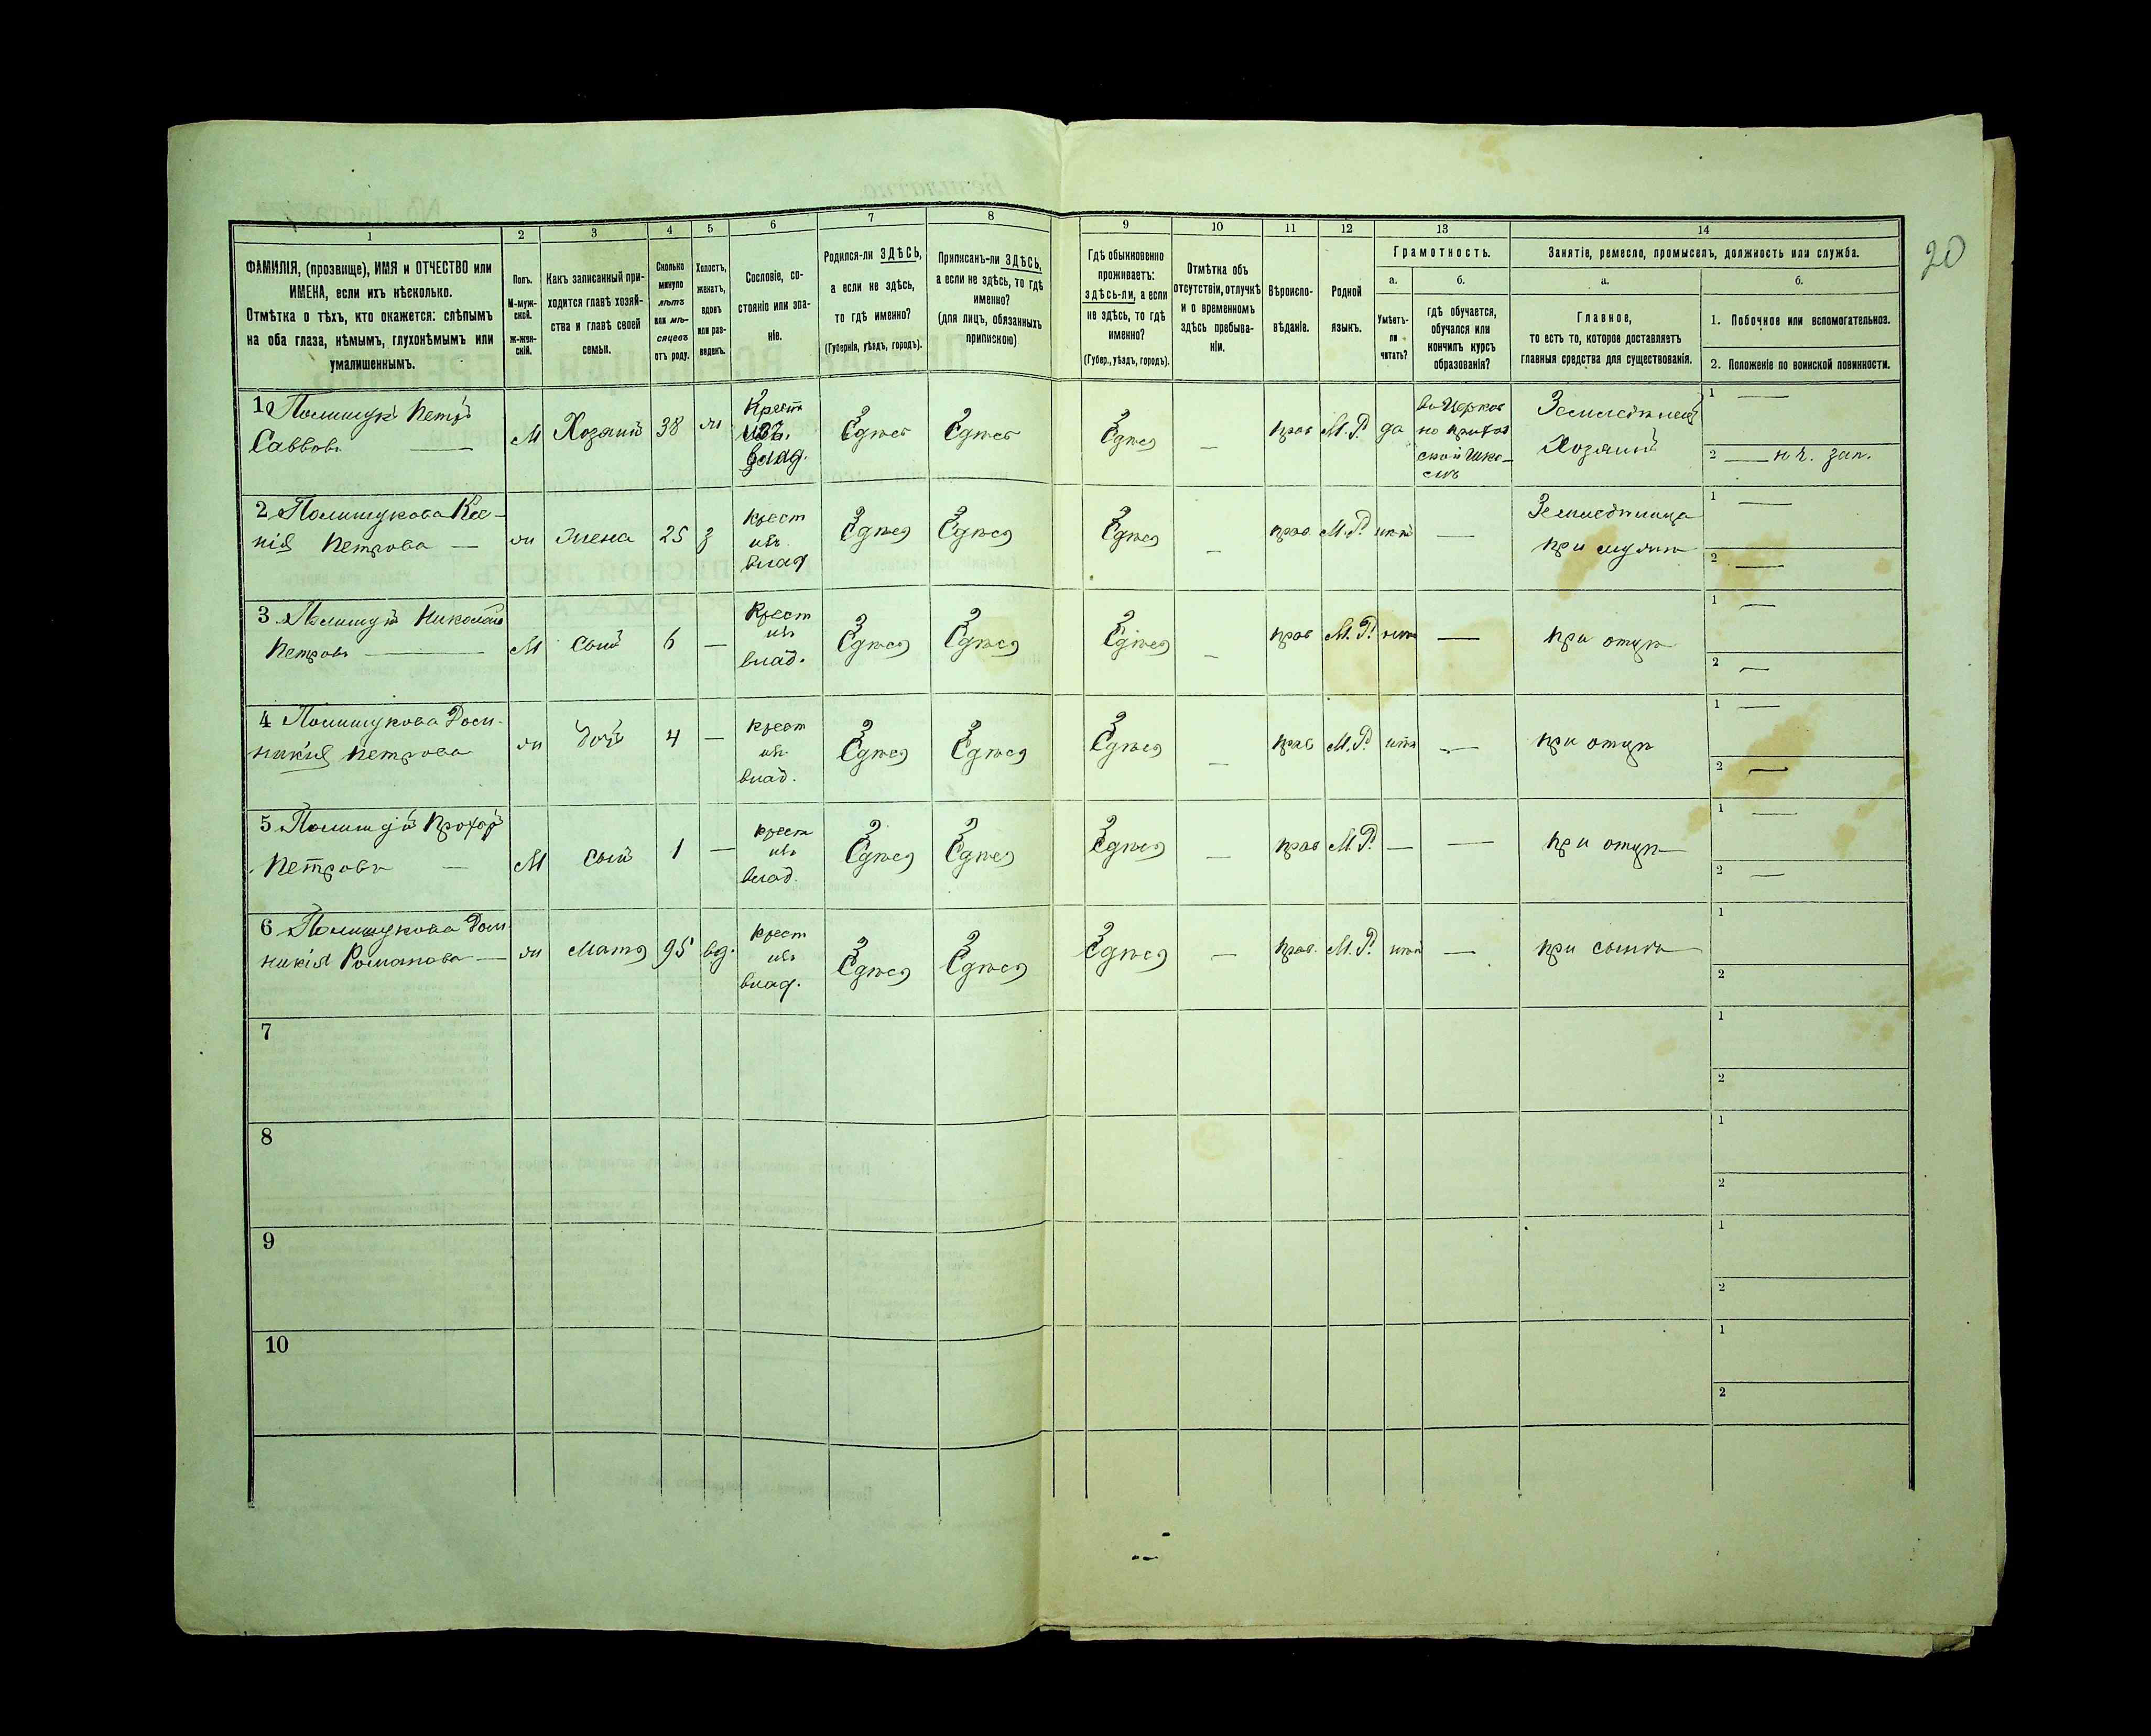 20
1 2 3 4 5 6 7 8 9 10 11 12 13 14
ФАМИЛІЯ, (прозвище), ИМЯ и ОТЧЕСТВО или
ИМЕНА, если ихъ нѣсколько.
Отмѣтка о тѣхъ, кто окажется: слѣпымъ
на оба глаза, нѣмымъ, глухонѣмымъ или
умалишеннымъ.
Полъ.
М-муж-
ской.
Ж-жен-
скій.
Какъ записанный при-
ходится главѣ хозяй-
ства и главѣ своей
семьи.
Сколько
минуло
лѣтъ
или мѣ-
сяцевъ
отъ роду.
Холостъ,
женатъ,
вдовъ
или раз-
веденъ.
Сословіе, со-
стояніе или зва-
ніе.
Родился-ли ЗДѢСЬ,
а если не здѣсь,
то гдѣ именно?
(Губернія, уѣздъ, городъ).
Приписанъ-ли ЗДѢСЬ,
а если не здѣсь, то гдѣ
именно?
(для лицъ, обязанныхъ
припискою)
Гдѣ обыкновенно
проживаетъ:
здѣсь-ли, а если
не здѣсь, то гдѣ
именно?
(Губер., уѣздъ, городъ).
Отмѣтка объ
отсутствіи, отлучкѣ
и о временномъ
здѣсь пребыва-
ніи.
Вѣроиспо-
вѣданіе.
Родной
языкъ.
Грамотность.
а.
Умѣетъ-
ли
читать?
б.
гдѣ обучается,
обучался или
кончилъ курсъ
образованія?
Занятіе, ремесло, промыселъ, должность или служба.
а.
Главное,
то есть то, которое доставляетъ
главныя средства для существованія.
б.
1. Побочное или вспомогательное.
2. Положеніе по воинской повинности.
1 Полищукъ Петръ
Саввовъ
М Хозяинъ 38 ж
Крест
изъ
влад.
Здѣсь Здѣсь Здѣсь — прав М.Р. да
въ Церков
но приход
ской Шко-
лѣ
Земледѣлецъ
Хозяинъ
1 —
2 — н ч. зап.
2 Полищукова Ксе-
нія Петрова —
ж жена 25 з
Крест
изъ
влад
Здѣсь Здѣсь Здѣсь — прав. М.Р. нѣтъ —
Земледѣлица
при мужѣ
1 —
2 —
3 Полищукъ Николай
Петровъ —
М сынъ 6 —
Крест
изъ
влад.
Здѣсь Здѣсь Здѣсь — прав М.Р. нѣтъ —
при отцѣ
1 —
2 —
4 Полищукова Доми-
никія Петрова
ж дочь 4 —
Крест
изъ
влад.
Здѣсь Здѣсь Здѣсь — прав М.Р. нѣтъ —
при отцѣ
1 —
2 —
5 Полищукъ Прохоръ
Петровъ —
М сынъ 1 —
Крест
изъ
влад.
Здѣсь Здѣсь Здѣсь — прав М.Р. — —
при отцѣ
1 —
2 —
6 Полищукова Доми
никія Романова —
ж мать 95 вд.
Крест
изъ
влад.
Здѣсь Здѣсь Здѣсь — прав. М.Р. нѣтъ —
при сынѣ
1
2
7
1
2
8
1
2
9
1
2
10
1
2